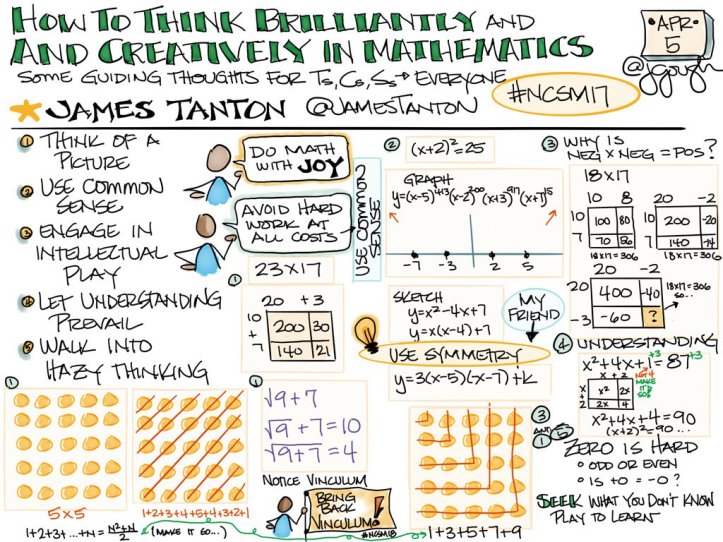 HOW TO THINK BRILLIANTLY AND
AND CREATIVELY IN MATHEMATICS
SOME GUIDING THOUGHTS FOR Ts, Cs, Ss → EVERYONE
APR
5
@jgough
#NCSM17
JAMES TANTON @JAMESTANTON
① THINK OF A
PICTURE
② USE COMMON
SENSE
③ ENGAGE IN
INTELLECTUAL
PLAY
④ LET UNDERSTANDING
PREVAIL
⑤ WALK INTO
HAZY THINKING
DO MATH
WITH JOY
AVOID HARD
WORK AT
ALL COSTS
USE COMMON
SENSE
①
23×17
20 +3
10 200 30
+
7 140 21
② (x+2)²=25
GRAPH
y=(x-5)⁴¹³(x-2)²⁰⁰(x+3)⁹¹⁷(x+7)¹⁵
-7 -3 2 5
SKETCH
y=x²-4x+7
y=x(x-4)+7
MY
FRIEND
USE SYMMETRY
y=3(x-5)(x-7)+k
③ WHY IS
NEG × NEG = POS?
18×17
10 8
10 100 80
7 70 56
18×17=306
20 -2
10 200 -20
7 140 -14
18×17=306
20 -2
20 400 -40
-3 -60 ?
18×17=306
SO...
④ UNDERSTANDING
x²+4x+1=87
+3 +3
x + 2
x x² 2x
+
2 2x 4
NOT 4
MAKE
IT
SO!
x²+4x+4=90
(x+2)²=90...
①
5×5
1+2+3+4+5+4+3+2+1
1+2+3+...+N=N²+N/2 (MAKE IT SO...)
①
√9+7
√9+7=10
√9+7=4
NOTICE VINCULUM
BRING
BACK
VINCULUM!
#NCSM18
③
AND
① ⑤
1+3+5+7+9
ZERO IS HARD
• ODD OR EVEN
• IS +0 = -0?
SEEK WHAT YOU DON'T KNOW
PLAY TO LEARN